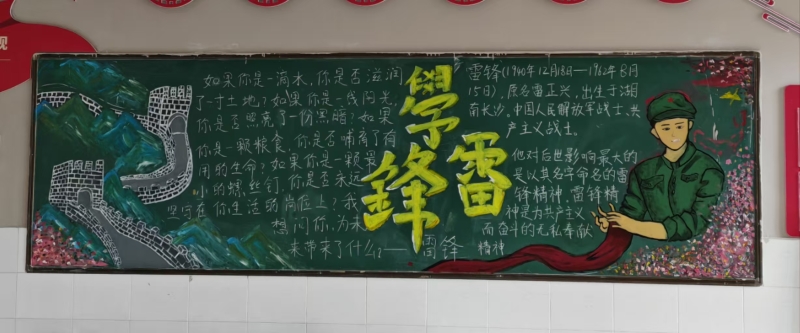 如果你是一滴水，你是否滋润
了一寸土地？如果你是一线阳光，
你是否照亮了一份黑暗？如果
你是一颗粮食，你是否哺离了有
用的生命？如果你是一颗最
小的螺丝钉，你是否永远
坚守在你生活的岗位上？我
想问你，为未
来带来了什么？——雷锋
學雷鋒
雷锋（1940年12月18日—1962年8月
15日），原名雷正兴，出生于湖
南长沙，中国人民解放军战士、共
产主义战士。
他对后世影响最大的
是以其名字命名的雷
锋精神，雷锋精
神是为共产主义
而奋斗的无私奉献
精神
观